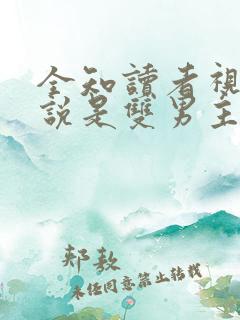 全知讀者視
說是雙男主
郏敖
未经同意禁止转载